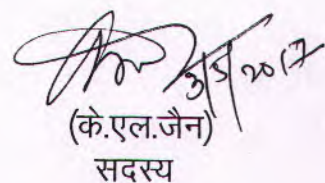 3/5/2017
(के.एल.जैन)
सदस्य